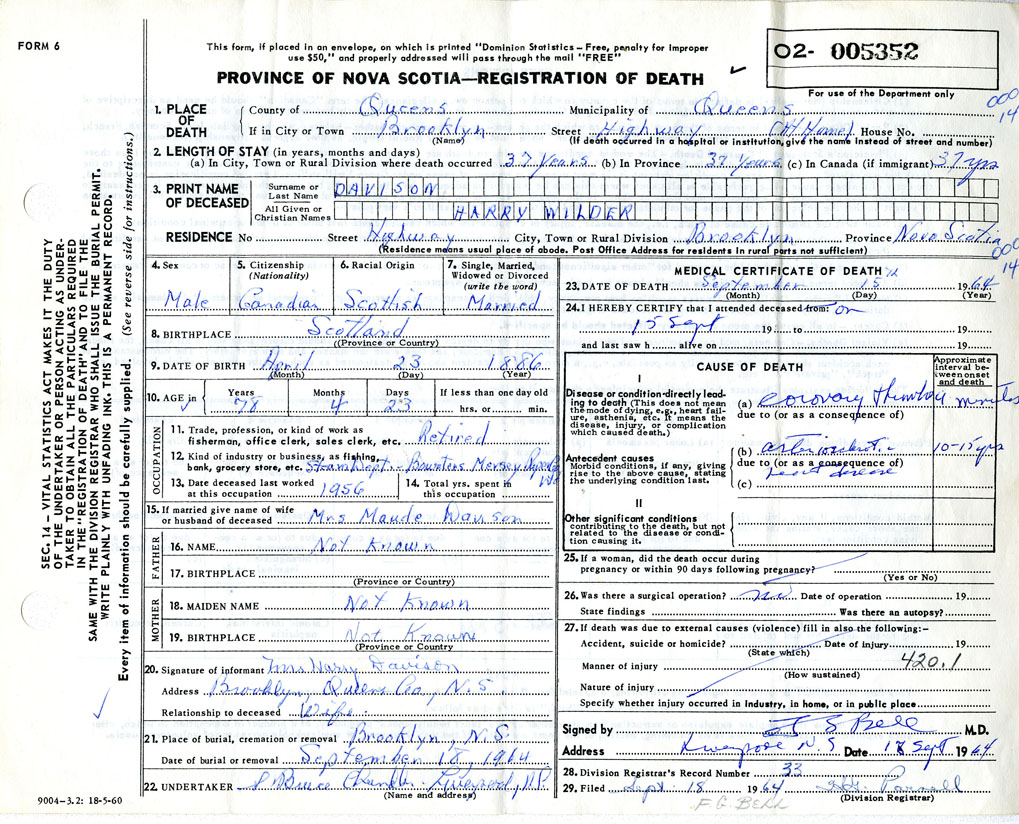 FORM 6
This form, if placed in an envelope, on which is printed "Dominion Statistics – Free, penalty for improper
use $50," and properly addressed will pass through the mail "FREE"
PROVINCE OF NOVA SCOTIA—REGISTRATION OF DEATH
O2- 005352
For use of the Department only
000
14
1. PLACE OF DEATH
County of Queens Municipality of Queens
If in City or Town Brooklyn Street Highway (At Home) House No.
(Name) (If death occurred in a hospital or institution, give the name instead of street and number)
2. LENGTH OF STAY (in years, months and days)
(a) In City, Town or Rural Division where death occurred 37 Years (b) In Province 37 Years (c) In Canada (if immigrant) 37 yrs
3. PRINT NAME OF DECEASED
Surname or Last Name DAVISON
All Given or Christian Names HARRY WILDER
RESIDENCE No Street Highway City, Town or Rural Division Brooklyn Province Nova Scotia
(Residence means usual place of abode. Post Office Address for residents in rural parts not sufficient)
000
14
4. Sex
Male
5. Citizenship
(Nationality)
Canadian
6. Racial Origin
Scottish
7. Single, Married,
Widowed or Divorced
(write the word)
Married
8. BIRTHPLACE Scotland
(Province or Country)
9. DATE OF BIRTH April 23 1886
(Month) (Day) (Year)
10. AGE in
Years Months Days If less than one day old
78 4 23 hrs. or min.
OCCUPATION
11. Trade, profession, or kind of work as
fisherman, office clerk, sales clerk, etc. Retired
12. Kind of industry or business, as fishing,
bank, grocery store, etc. Steam Dept - Bowaters Mersey
13. Date deceased last worked
at this occupation 1956
14. Total yrs. spent in
this occupation
15. If married give name of wife
or husband of deceased Mrs Maude Davison
FATHER
16. NAME Not Known
17. BIRTHPLACE
(Province or Country)
MOTHER
18. MAIDEN NAME Not Known
19. BIRTHPLACE Not Known
(Province or Country)
20. Signature of informant Mrs Harry Davison
Address Brooklyn, Queens Co, N.S.
Relationship to deceased Wife
21. Place of burial, cremation or removal Brooklyn N.S.
Date of burial or removal September 18, 1964
22. UNDERTAKER Bruce Chandler Liverpool, N.S.
(Name and address)
9004-3.2: 18-5-60
MEDICAL CERTIFICATE OF DEATH
23. DATE OF DEATH September 15 1964
(Month) (Day) (Year)
24. I HEREBY CERTIFY that I attended deceased from: on
15 Sept 19 to 19
and last saw h alive on 19
CAUSE OF DEATH
Approximate
interval be-
tween onset
and death
I
Disease or condition directly lead-
ing to death (This does not mean
the mode of dying, e.g., heart fail-
ure, asthenia, etc. It means the
disease, injury, or complication
which caused death.)
(a) coronary thrombosis minutes
due to (or as a consequence of)
Antecedent causes
Morbid conditions, if any, giving
rise to the above cause, stating
the underlying condition last.
(b) arteriosclerotic 10-15 yrs
due to (or as a consequence of)
heart disease
(c)
II
Other significant conditions
contributing to the death, but not
related to the disease or condi-
tion causing it.
25. If a woman, did the death occur during
pregnancy or within 90 days following pregnancy?
(Yes or No)
26. Was there a surgical operation? no Date of operation 19
State findings Was there an autopsy?
27. If death was due to external causes (violence) fill in also the following:–
Accident, suicide or homicide? Date of injury 19
(State which)
420.1
Manner of injury
(How sustained)
Nature of injury
Specify whether injury occurred in industry, in home, or in public place
Signed by F G Bell M.D.
Address Liverpool N.S Date 18 Sept 1964
28. Division Registrar's Record Number 33
29. Filed Sept. 18 1964 Parnell
(Division Registrar)
F.G. BELL
SEC. 14 – VITAL STATISTICS ACT MAKES IT THE DUTY
OF THE UNDERTAKER OR PERSON ACTING AS UNDER-
TAKER TO OBTAIN ALL THE PARTICULARS REQUIRED
IN THE "REGISTRATION OF DEATH" AND TO FILE THE
SAME WITH THE DIVISION REGISTRAR WHO SHALL ISSUE THE BURIAL PERMIT.
WRITE PLAINLY WITH UNFADING INK. THIS IS A PERMANENT RECORD.
Every item of information should be carefully supplied. (See reverse side for instructions.)